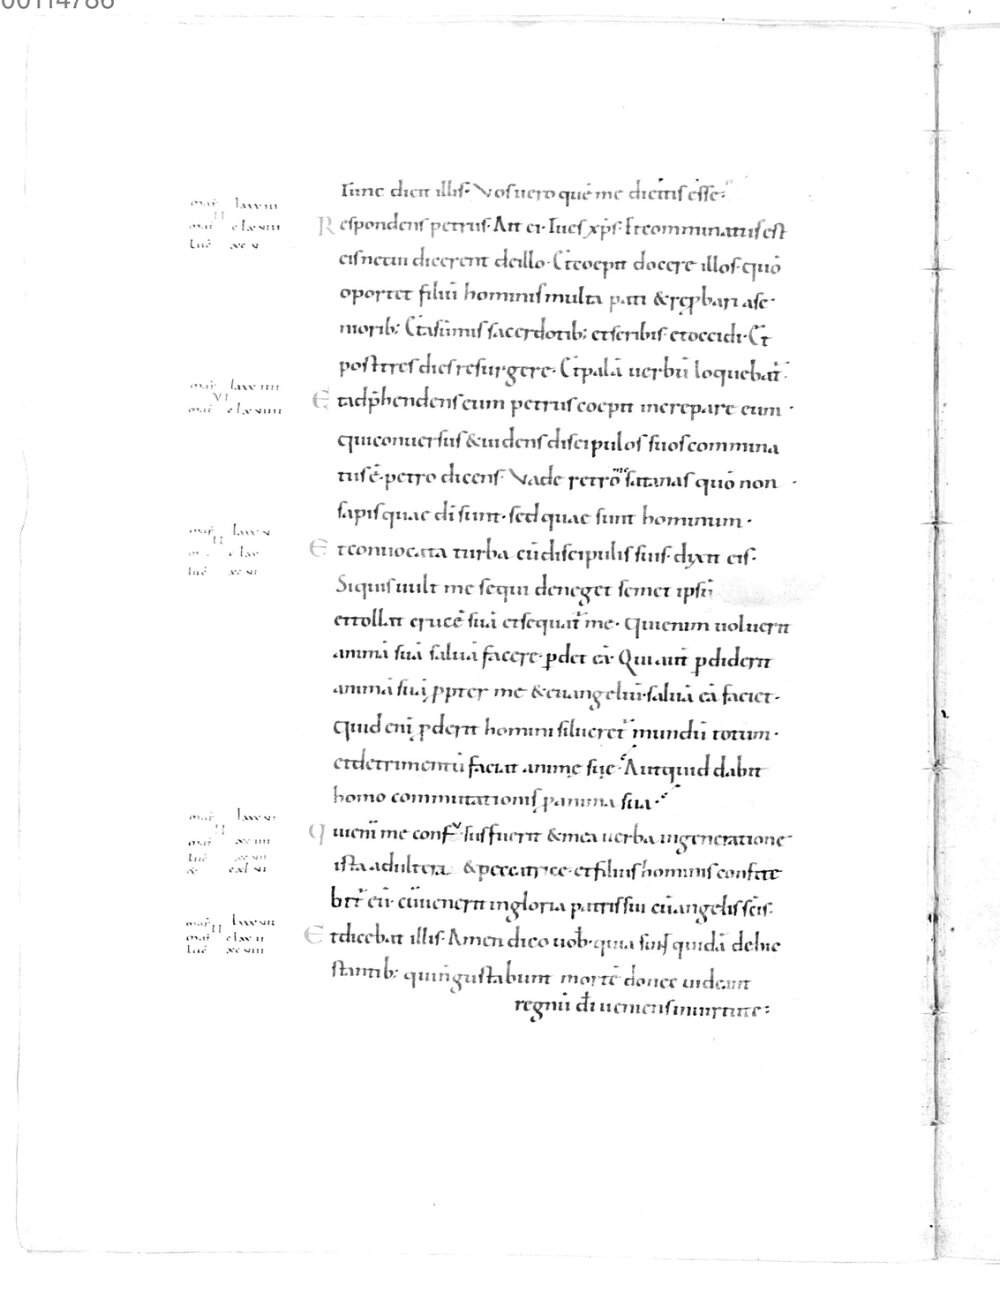 00114786
Tunc dicit illis· Vos uero quē me dicitis esse·
Respondens petrus· Ait ei· Tu es xp̄s· Et comminatus est
eis ne cui dicerent de illo· Et coepit docere illos· quō
oportet filiū hominis multa pati & rep̱bari a se
niorib; Et a sūmis sacerdotib; et scribis et occidi· Et
post tres dies resurgere· Et palā uerbū loquebat̄·
Et adp̄hendens eum petrus coepit increpare eum·
qui conuersus & uidens discipulos suos commina
tus ē· petro dicens· Vade retro me satanas quō non
sapis quae dī sunt· sed quae sunt hominum·
Et conuocata turba cū discipulis suis· dixit eis·
Siquis uult me sequi deneget semet ipsū
et tollat crucē suā et sequat̄ me· Qui enim uoluerit
animā suā saluā facere· ꝑdet eā· Qui aut̄ ꝑdiderit
animā suā ꝓpter me & euangeliū· saluā eā faciet·
Quid enī ꝓderit homini si lucret̄ mundū totum·
et detrimentū faciat animę suę· Aut quid dabit
homo commutationis ꝓ anima sua·
Qui enī me confusus fuerit & mea uerba in generatione
ista adultera & peccatrice· et filius hominis confite
bit̄ eū· cū uenerit in gloria patris sui cū angelis scīs·
Et dicebat illis· Amen dico uob̄· quia sunt quidā de hic
stantib; qui n̄ gustabunt mortē donec uideant
regnū dī ueniens in uirtute·